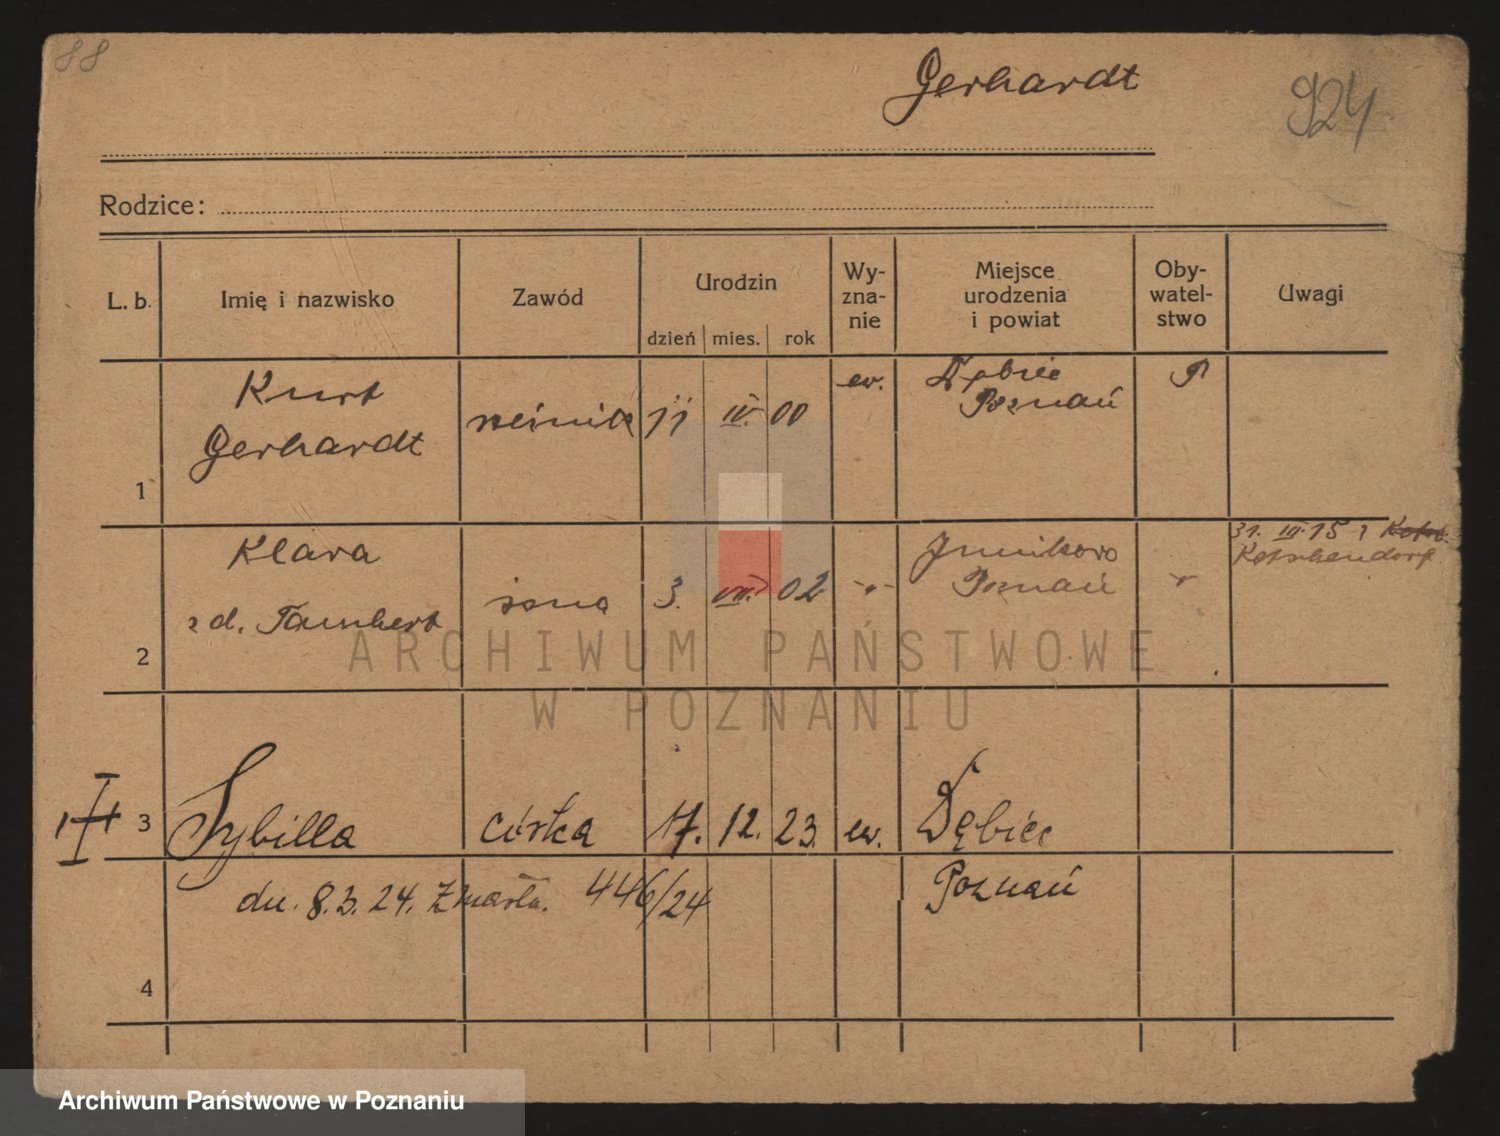 88
Gerhardt
924
Rodzice:
L. b.
Imię i nazwisko
Zawód
Urodzin
dzień
mies.
rok
Wy-
zna-
nie
Miejsce
urodzenia
i powiat
Oby-
watel-
stwo
Uwagi
1
Kurt
Gerhardt
11
IV.
00
ew.
Dębiec
Poznań
P
2
Klara
z d. Tambert
żona
3.
VII.
02
-"-
Junikowo
Poznań
31. III. 15 z
Ketschendorf
3
Sybilla
córka
17.
12.
23.
ew.
Dębiec
Poznań
dn. 8.3.24. Zmarła. 446/24
4
ARCHIWUM PAŃSTWOWE
W POZNANIU
Archiwum Państwowe w Poznaniu